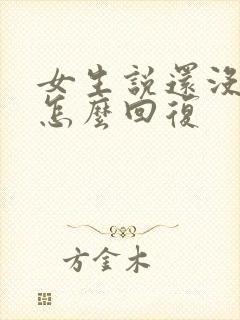 女生說還沒
怎麼回復
方金木